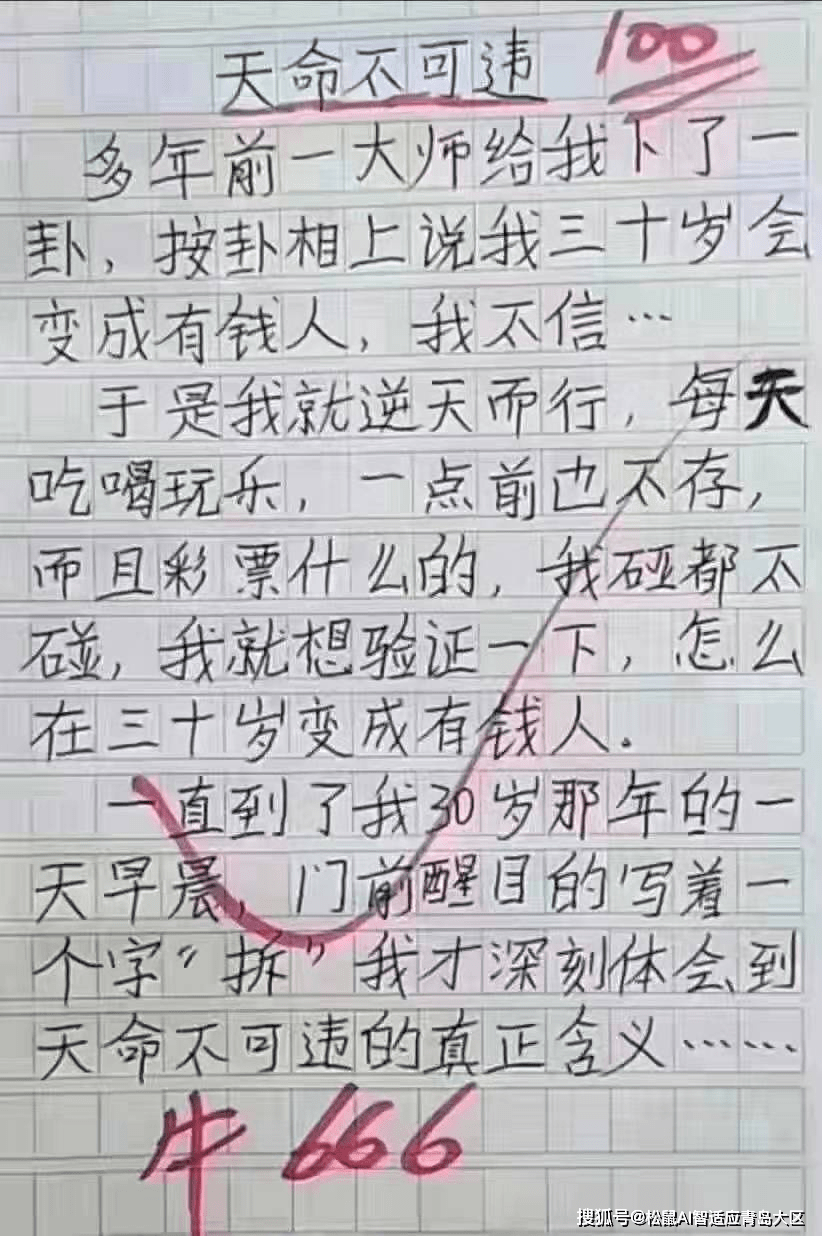 天命不可违 100
多年前一大师给我下了一
卦，按卦相上说我三十岁会
变成有钱人，我不信…
于是我就逆天而行，每天
吃喝玩乐，一点前也不存，
而且彩票什么的，我碰都不
碰，我就想验证一下，怎么
在三十岁变成有钱人。
一直到了我30岁那年的一
天早晨，门前醒目的写着一
个字“拆”我才深刻体会到
天命不可违的真正含义……
牛 666
搜狐号@松鼠AI智适应青岛大区